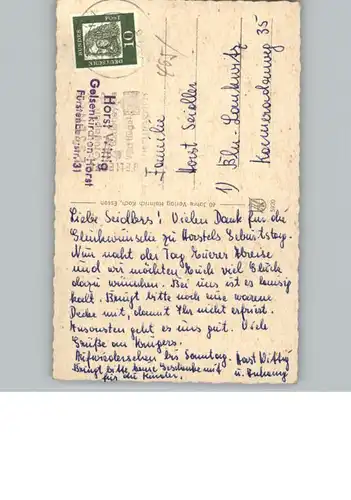 10
DEUTSCHE
BUNDESPOST
Horst Wittig
Gelsenkirchen-Horst
Fürstenbergstr. 31
Familie
Horst Seidler
1) Bln-Lankwitz
Kameradenweg 35
60 Jahre Verlag Heinrich Koch, Essen
Liebe Seidlers! Vielen Dank für die
Glückwünsche zu Horstels Geburtstag.
Nun naht der Tag Eurer Abreise
und wir möchten Euch viel Glück
dazu wünschen. Bei uns ist es lausig
kalt. Bringt bitte noch eine warme
Decke mit, damit Ihr nicht erfriert.
Ansonsten geht es uns gut. Viele
Grüße an Krügers.
Aufwiedersehen bis Sonntag. Horst Wittig
Bringt bitte keine Geschenke mit u. Anhang
für die Kinder.